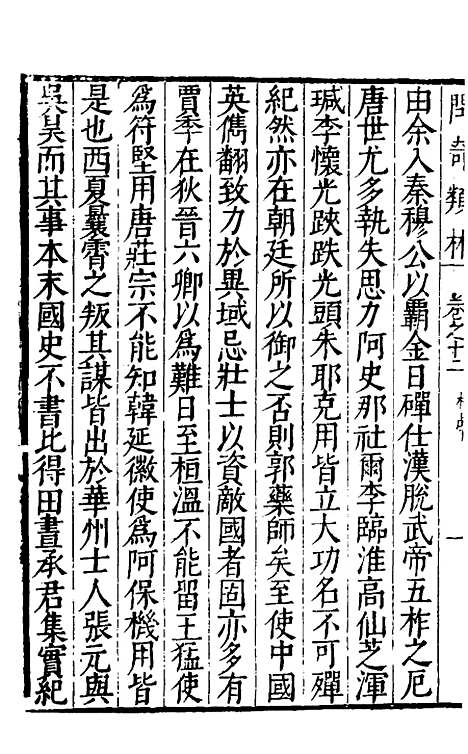 閒奇類林 卷之十二 一
由余入秦穆公以霸金日磾仕漢脫武帝五柞之厄
唐世尤多執失思力阿史那社爾李臨淮高仙芝渾
瑊李懷光跌跌光頭朱耶克用皆立大功名不可殫
紀然亦在朝廷所以御之否則郭藥師矣至使中國
英儁翻致力於異域忌壯士以資敵國者固亦多有
賈季在狄晉六卿以爲難日至桓溫不能留王猛使
爲符堅用唐莊宗不能知韓延徽使爲阿保機用皆
是也西夏曩霄之叛其謀皆出於華州士人張元與
吳昊而其事本末國史不書比得田晝承君集實紀